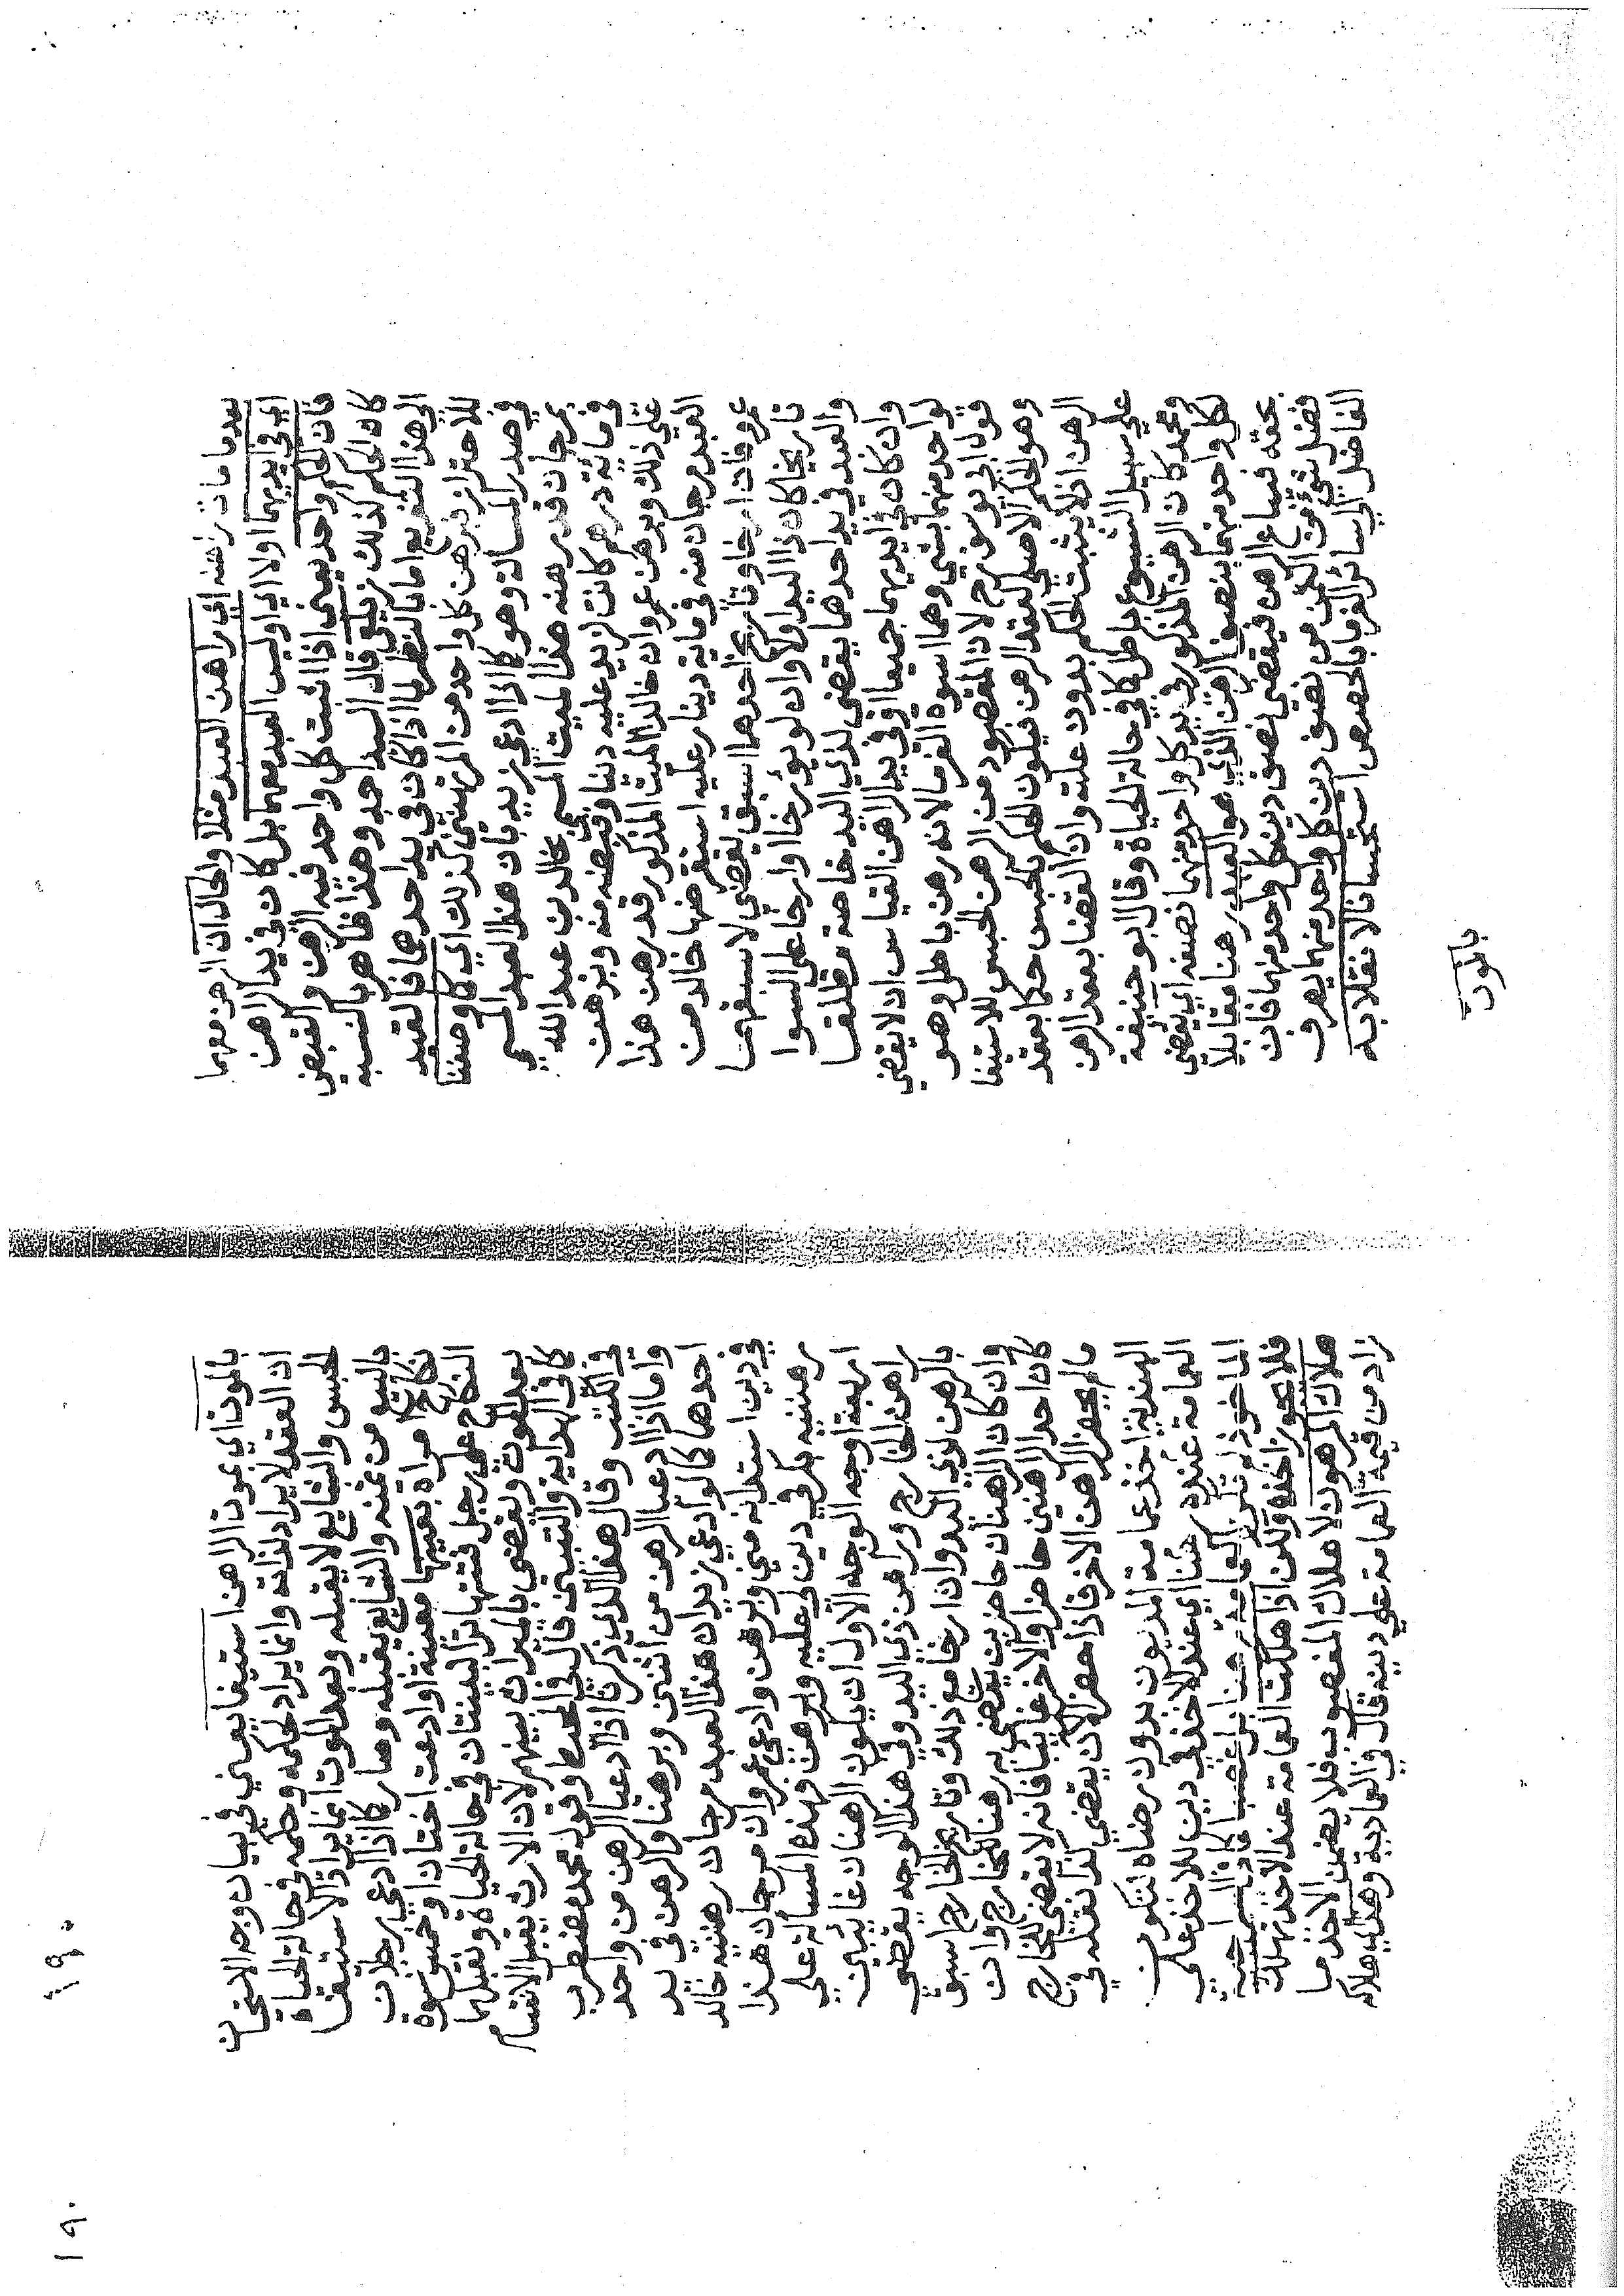 بعدما مات راهنه اي راهن العبد مثلا والحال ان الرهن معهما
اي في ايديهما اولا اي او ليس العبد معهما بل كان في يد الراهن
فان الحكم واحد يعني اذا اثبت كل واحد فيه الرهن والقبض
كان الحكم كذلك زيلعي قال السيد احمد وهذا ظاهر بالنسبه
الي هذا التفريع اما بالنظر لما اذا كان في يد احدهما فالتقييد
للاحتراز برهن كل واحد من المرتهنين كذلك اي كما وصفنا
في صدر المسالة وهو كما اذا ادعي زيد بان هذا العبد المسمي
بمرجان قد رهنه هذا الميت المسمي بخالد بن عبد الله
في ماية درهم كانت لزيد عليه دينا وقبضه منه وبرهن
علي ذلك وبرهن عمرو ان خالدا الميت المذكور قد رهن هذا
العبد مرجان منه في ماية دينار عليه استقرضها خالد من
عمرو فان ارخا وتاريخ احدهما اسبق يقضي لاسبقهما
تاريخا كان ذا اليد اولا وان لم يؤرخا او ارخا علي السوا
والعبد في يد احدهما يقضي لذي اليد خاصة مطلقا
وان كان في ايديهما جميعا او في يد الراهن القياس ان لا يقضي
لواحد منهما بشي وهما اسوة الغرما لانه رهن باطل وهو
قول ابي يوسف رح لان المقصود من الرهن الحبس للاستيفا
وهو الحكم الاصلي لعقد الرهن فيكون الحكم بالحبس حكما بعقد
الرهن اذ لا يثبت الحكم بدون علته وان القضا بعقد الرهن
علي سبيل الشيوع باطل كما في حالة الحياة وقال ابو حنيفة
ومحمد كان الرهن المذكور في يد كل واحد منهما نصفه اي يقضي
لكل واحد منهما بنصف الرهن الذي هو العبد رهنا مقابلا
بحقه فيباع الرهن فيقضي نصف دين كل واحد منهما فان
فضل شي من الثمن من نصف دين كل واحد منهما يصرف
الفاضل الي سائر الغرما بالحصص استحسانا لانقلابه
بالموت
١٩٠
١٩٠
بالموت اي بموت الراهن استيفا يعني في بيان وجه الاستحسان
ان العقد لا يراد لذاته وانما يراد لحكمه وحكمه في حالة الحياة
الحبس والشايع لا يقبله وبعد الموت انما يراد الاستيفا
بالبيع من ثمنه والشايع يقبله وصار كما اذا ادعي رجلان
نكاح امراة بعينها معينة او ادعت اختان او خمس نسوة
النكاح علي رجل فتتهاتر البينتان في حالة الحياة وتقبلها
بعد الموت ويقضي بالميراث بينهم لان الارث يقبل الانقسام
كما في الهداية والتبيين قال في المحيط وقول محمد مضطرب
في الكتب وقال هذا الذي ذكرنا اذا ادعيا الرهن من واحد
واما اذا ادعيا الرهن من اثنين وبرهنا والرهن في يد
احدهما كما لو ادعي زيد ان هذا العبد مرجان رهننيه خالد
في دين استدانه مني وبرهن وادعي عمرو ان مرجان هذا
رهننيه بكر في دين لي عليه وبرهن فهذه المسالة علي
اربعة اوجه الوجه الاول ان يكون الرهنان غايبين
راهن الخارج وراهن ذي اليد وفي هذا الوجه يقضي
بالرهن لذي اليد وان ارخا مع ذلك وتاريخ الخارج اسبق
وان كان الراهنان حاضرين يقضي به رهنا للخارج وان
كان احد الراهنين حاضرا والاخر غايبا فانه لا يقضي للخارج
مالم يحضر الراهن الاخر فاذا حضر الان يقضي كذا نقله في
الهندية اخذ عمامة المديون بدون رضاه لتكون
العمامة عنده رهنا اي عند الاخذ في دين للاخذ علي
الماخوذ لم تكن العمامة رهنا بل غصبا كما في السراجية
فلا يجوز اخذه ولكن اذا هلكت العمامة عند الاخذ تهلك
هلاك المرهون لا هلاك المغصوب فلا يضمن الاخذ ما
زاد من قيمة العمامة علي دينه قال في العمادية وهذا هلاك